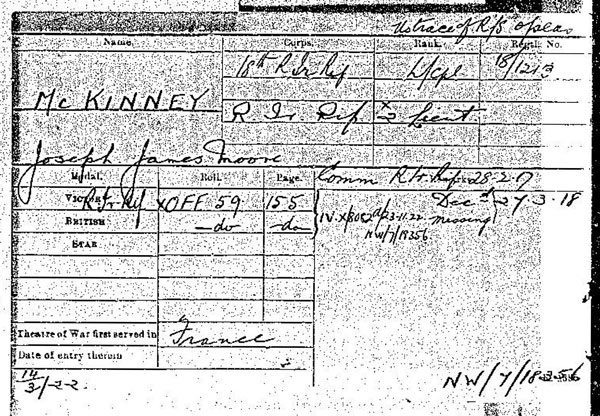 No trace of R/B
Name. Corps. Rank. Regtl. No.
18th R Ir Rif L/Cpl 18/1213
McKINNEY R. Ir. Rif x2 Lieut
Joseph James Moore
Medal. Roll. Page. Comm R Ir. Rif 28-2-17
VICTORY R Ir Rif xOFF 59 155 Decd 27-3-18
BRITISH -do- -do- missing
IV. X/8052A/23-11-22
NW/7/18356
STAR
Theatre of War first served in France
Date of entry therein
14/3/22. NW/7/18356